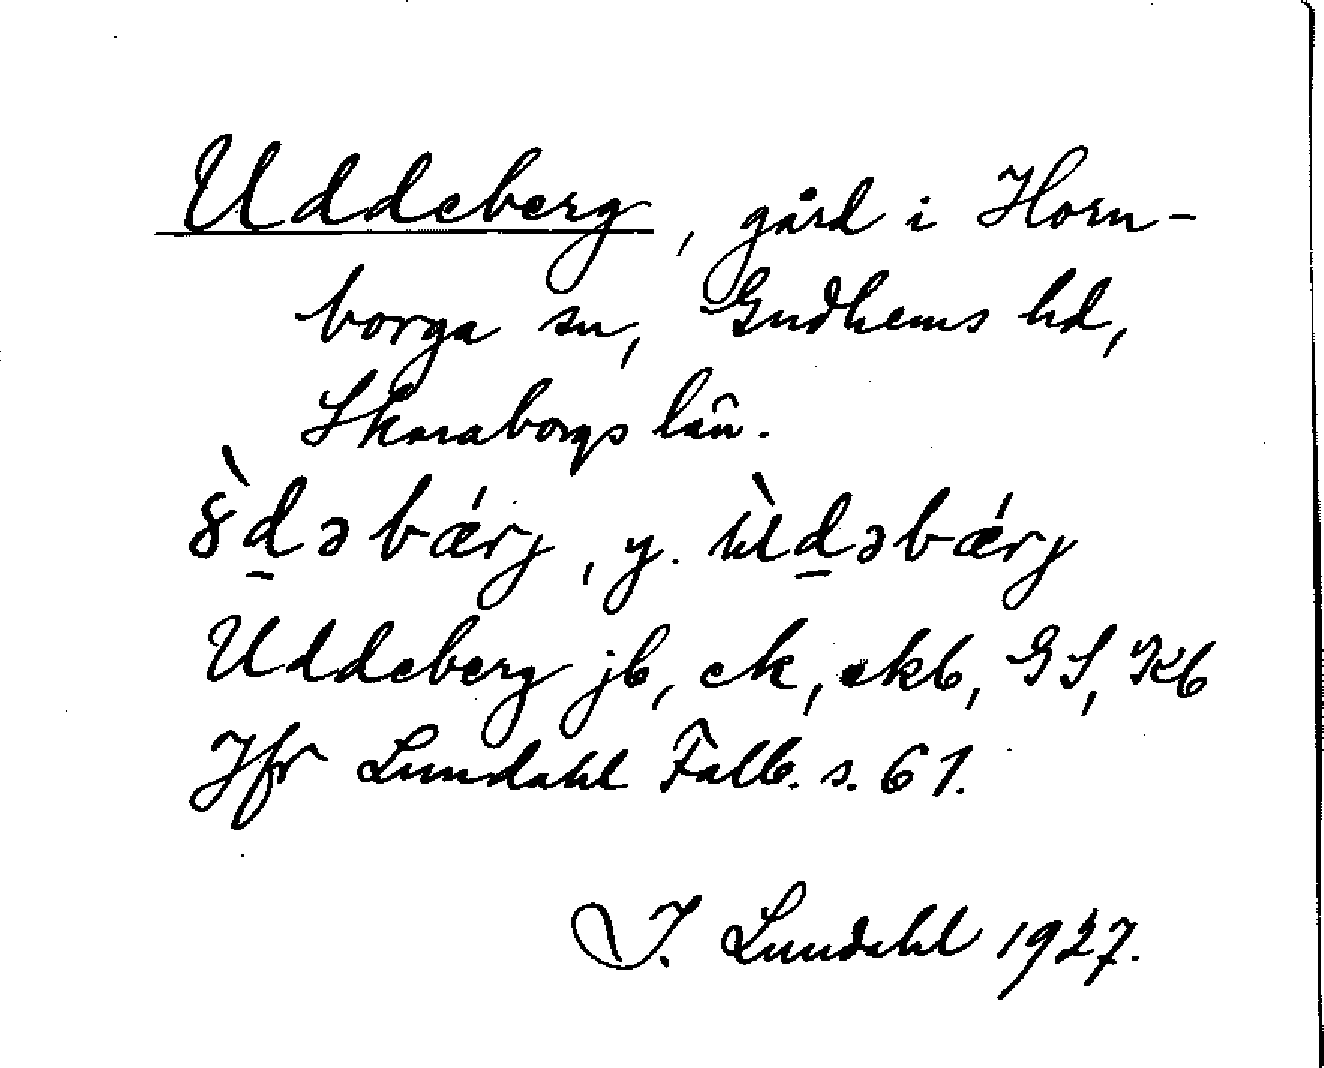 Uddeberg, gård i Horn-
borga sn, Gudhems hd,
Skaraborgs län.
ȣ̀d̲əbǽrj, y. ùd̲əbǽrj
Uddeberg jb, ek, ekb, GS, Kb
Jfr Lundahl Falb. s. 61.
I. Lundahl 1927.